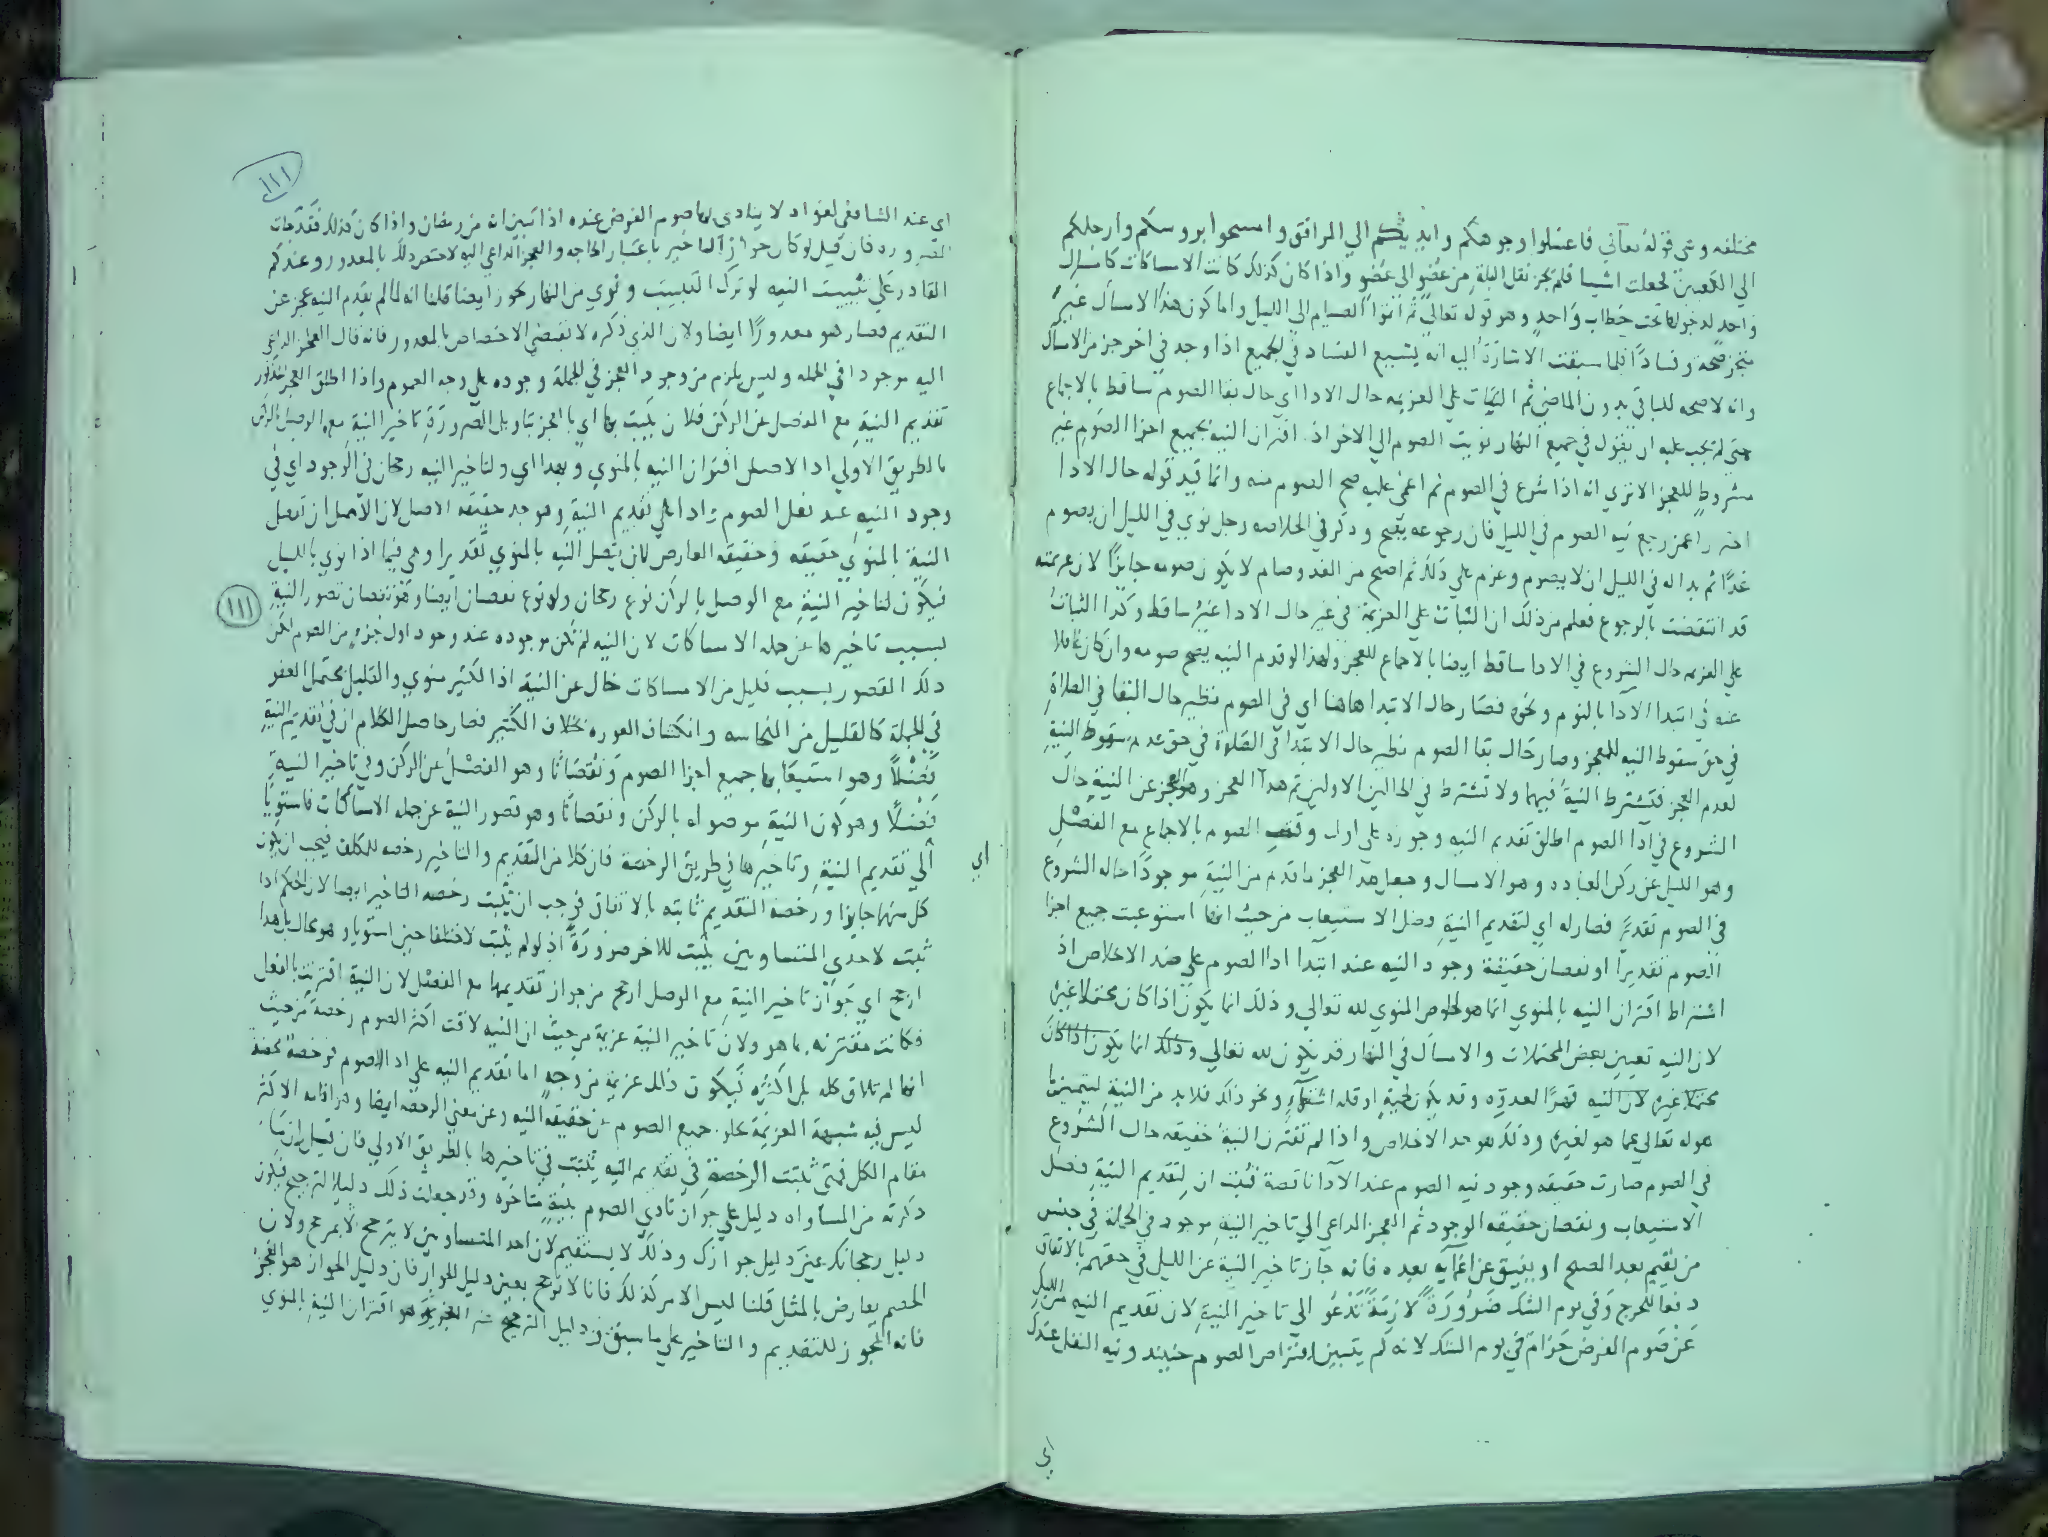 مختلفه وهي قوله تعالى فاغسلوا وجوهكم وايديكم الي المرافق وامسحوا بروسكم وارجلكم
الي الكعبين لجعلت اشيا فلم يجز نقل البلة من عضو الى عضو واذا كان كذلك كانت الامساكات كامساك
واحد لدخولها تحت خطاب واحد وهو قوله تعالي ثم اتموا الصيام الي الليل واما كون هذا الامساك غير
متجز صحة وفسادا فلما سبقت الاشارة اليه انه يشيع الفساد في الجميع اذا وجد في اخر جز من الامساك
وانه لا صحه للباقي بدون الماضي ثم الثبات علي العزيمه حال الادا اي حال بقا الصوم ساقط بالاجماع
حتى لم يجب عليه ان يقول في جميع النهار نويت الصوم الي الاخر اذ اقتران النية بجميع اجزا الصوم غير
مشروط للعجز الا تري انه اذا شرع في الصوم ثم اغمي عليه صح الصوم منه وانما قيد قوله حال الادا
احترازا عمن رجع نيه الصوم في الليل فان رجوعه يصح وذكر في الخلاصه رجل نوي في الليل ان يصوم
غدا ثم بدا له في الليل ان لا يصوم وعزم علي ذلك ثم اصبح من الغد وصام لا يكون صومه جايزا لان عزيمته
قد انتقضت بالرجوع فعلم من ذلك ان الثبات علي العزيمة في غير حال الادا غير ساقط وكذا الثبات
علي العزيمه حال الشروع في الادا ساقط ايضا بالاجماع للعجز ولهذا لو قدم النيه يصح صومه وان كان غافلا
عنه في ابتدا الادا بالنوم ونحوه فصار حال الابتدا هاهنا اي في الصوم نظير حال البقا في الصلاة
في حق سقوط النيه للعجز وصار حال بقا الصوم نظير حال الابتدا في الصلاة في حق عدم سقوط النية
لعدم العجز فتشترط النية فيهما ولا تشترط في الحالين الاولين ثم هذا العجز وهو العجز عن النية حال
الشروع في ادا الصوم اطلق تقديم النيه وجوزه علي اول وقت الصوم بالاجماع مع الفصل
وهو الليل عن ركن العباده وهو الامساك وجعل هذا العجز ما قدم من النية موجودا حاله الشروع
في الصوم تقديرا فصار له اي لتقديم النية فضل الاستيعاب من حيث انها استوعبت جميع اجزا
الصوم تقديرا ونقصان حقيقة وجود النيه عند ابتدا ادا الصوم علي ضد الاخلاص اذ
اشتراط اقتران النيه بالمنوي انما هو لخلوص المنوي لله تعالي وذلك انما يكون اذا كان محتملا غيره
لان النيه تعيين بعض المحتملات والامساك في النهار قد يكون لله تعالي وذلك انما يكون اذا كان
محتملا غيره لان النيه قهرا لعدوه وقد يكون لحمية او قله اشتهاء ونحو ذلك فلا بد من النية ليتميز ما
هو له تعالي عما هو لغيره وذلك هو حد الاخلاص واذا لم تقترن النية حقيقه حال الشروع
في الصوم صارت حقيقه وجود نيه الصوم عند الادا ناقصة فثبت ان لتقديم النية فضل
الاستيعاب ونقصان حقيقه الوجود ثم العجز الداعي الي تاخير النية موجود في الجملة في جنس
من يقيم بعد الصبح او يفيق عن اغمايه بعده فانه جاز تاخير النية عن الليل في حقهم بالاتفاق
دفعا للحرج وفي يوم الشك ضرورة لازمة تدعو الي تاخير النية لان تقديم النيه من الليل
عن صوم الفرض حرام في يوم الشك لانه لم يتبين افتراض الصوم حينيذ ونيه النفل عندك
اي
اي عند الشافعي لغو اذ لا يتادى بها صوم الفرض عنده اذا تبين انه من رمضان واذا كان كذلك فقد جات
الضروره فان قيل لو كان جواز التاخير باعتبار الحاجه والعجز الداعي اليه لاختص ذلك بالمعذور وعندكم
القادر علي تبييت النيه لو ترك التبييت ونوي من النهار يجوز ايضا قلنا انه لما لم يقدم النيه عجز عن
التقديم فصار هو معذورا ايضا ولان الذي ذكره لا يقتضي الاختصاص بالمعذور فانه قال العجز الداعي
اليه موجود في الجمله وليس يلزم من وجود العجز في الجملة وجوده علي وجه العموم واذا اطلق العجز المذكور
تقديم النية مع الفصل عن الركن فلان يثبت بها اي بالعجز بتاويل الضرورة تاخير النية مع الوصل بالركن
بالطريق الاولي اذ الاصل اقتران النيه بالمنوي وبهذا اي ولتاخير النيه رجحان في الوجود اي في
وجود النيه عند فعل الصوم زادا علي تقديم النية وهو حد حقيقه الاصل لان الاصل ان تتصل
النية بالمنوي حقيقه وحقيقه العارض بان يتصل النيه بالمنوي تقديرا وهي فيما اذا نوي بالليل
فيكون لتاخير النية مع الوصل بالركن نوع رجحان وله نوع نقصان ايضا وهو نقصان قصور النية
لسبب تاخيرها عن جمله الامساكات لان النيه لم تكن موجوده عند وجود اول جزء من الصوم لكن
ذلك القصور بسبب قليل من الامساكات خال عن النية اذ الكثير منوي والقليل يحتمل العفو
في الجملة كالقليل من النجاسه وانكشاف العوره بخلاف الكثير فصار حاصل الكلام ان في تقديم النية
فضلا وهو استيعابها جميع اجزا الصوم ونقصانا وهو الفصل عن الركن وفي تاخير النية
فضلا وهو كون النية موصوله بالركن ونقصانا وهو قصور النية عن جمله الامساكات فاستويا
اي
اي تقديم النية وتاخيرها في طريق الرخصة فان كلا من التقديم والتاخير رخصه للمكلف فيجب ان يكون
كل منهما جايزا ورخصة التقديم ثابته بالاتفاق فوجب ان تثبت رخصه التاخير ايضا لان الحكم اذا
ثبت لاحدي المتساويين يثبت للاخر ضرورة اذ لو لم يثبت لاختلفا حين استويا وهو محال بل هذا
ارجح اي جواز تاخير النية مع الوصل ارجح من جواز تقديمها مع الفصل لان النية اقترنت بالفعل
فكانت مقترنه بما هو ولان تاخير النية عزيمة من حيث ان النيه لاقت اكثر الصوم رخصة من حيث
انها لم تلاق كله بل اكثره فيكون ذلك عزيمة من وجه اما تقديم النيه علي ادا الصوم فرخصة محضة
ليس فيه شبهة العزيمة لخلو جميع الصوم عن حقيقه النيه وعن معني الرخصه ايضا وهو اقامه الاكثر
مقام الكل فمتى ثبتت الرخصة في تقديم النيه يثبت في تاخيرها بالطريق الاولي فان قيل ان ما
ذكرته من المساواه دليل علي جواز تادي الصوم بنية متاخره وقد جعلت ذلك دليلا لترجيح فيكون
دليل رجحانك عين دليل جوازك وذلك لا يستقيم لان احد المتساويين لا يترجح الا بمرجح ولان
الخصم يعارض بالمثل قلنا ليس الامر كذلك فانا لا نرجح بعين دليل الجواز فان دليل الجواز هو العجز
فانه المجوز للتقديم والتاخير علي ما سبق ودليل الترجيح هو اقتران النية بالمنوي
١١١
١١١